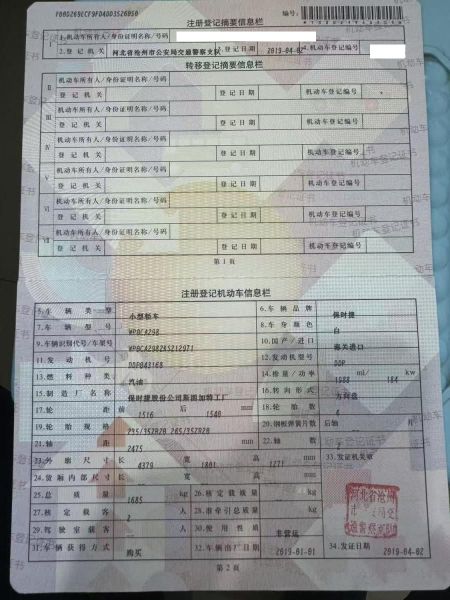 注册登记摘要信息栏
编号:
1.机动车所有人/身份证明名称/号码
2.登记机关 河北省沧州市公安局交通警察支队 登记日期 2019-04-02
转移登记摘要信息栏
Ⅱ 机动车所有人/身份证明名称/号码
登记机关 登记日期 机动车登记编号
Ⅲ 机动车所有人/身份证明名称/号码
登记机关 登记日期 机动车登记编号
Ⅳ 机动车所有人/身份证明名称/号码
登记机关 登记日期 机动车登记编号
Ⅴ 机动车所有人/身份证明名称/号码
登记机关 登记日期 机动车登记编号
Ⅵ 机动车所有人/身份证明名称/号码
登记机关 登记日期 机动车登记编号
Ⅶ 机动车所有人/身份证明名称/号码
登记机关 登记日期 机动车登记编号
第1页
注册登记机动车信息栏
5.车辆类型 小型轿车 6.车辆品牌 保时捷
7.车辆型号 WP0CA298 8.车身颜色 白
9.车辆识别代号/车架号 10.国产/进口 海关进口
11.发动机号 DDP043168 12.发动机型号 DDP
13.燃料种类 汽油 14.排量/功率 1988 ml/ 184 kw
15.制造厂名称 保时捷股份公司斯图加特工厂 16.转向形式 方向盘
17.轮距 前 1516 后 1540 mm 18.轮胎数 4
19.轮胎规格 235/35ZR20 265/35ZR20 20.钢板弹簧片数 后轴
21.轴距 2475 mm 22.轴数 2
23.外廓尺寸 长 4379 宽 1801 高 1271 mm 33.发证机关章
24.货厢内部尺寸 长 宽 高 mm
25.总质量 1685 kg 26.核定载质量 kg
27.核定载客 2 人 28.准牵引总质量 kg
29.驾驶室载客 人 30.使用性质 非营运
31.车辆获得方式 购买 32.车辆出厂日期 2019-01-01 34.发证日期 2019-04-02
第2页